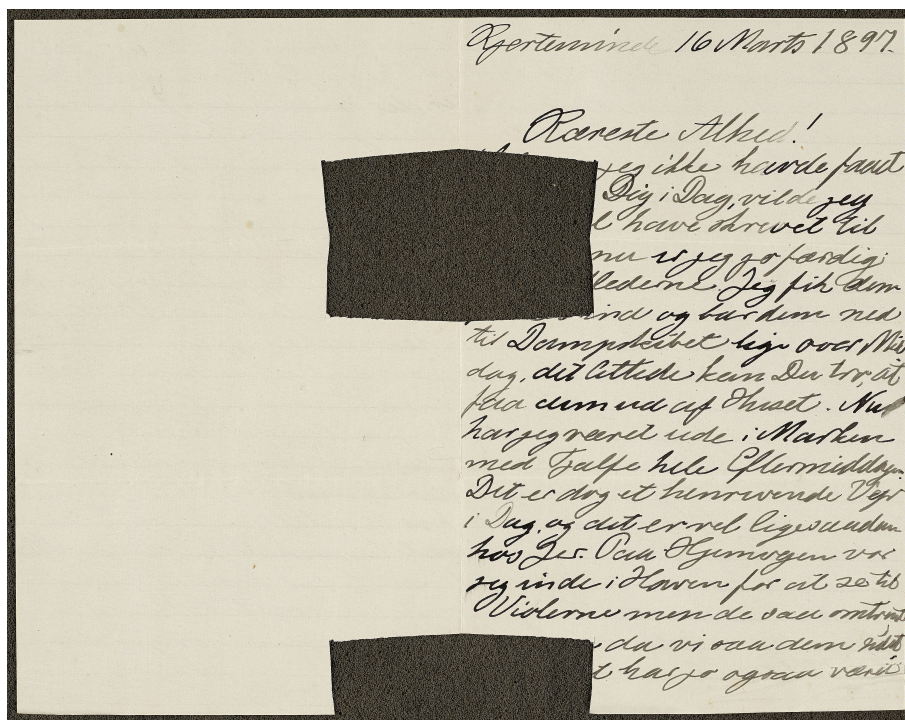 Kjerteminde 16 Marts 1897.
Kæreste Alhed!
jeg ikke havde faaet
Dig i Dag, vilde jeg
have skrevet til
nu er jeg jo færdig
lederne. Jeg fik dem
ind og bar dem ned
til Dampskibet lige over Mid
dag, det lettede kan Du tro, at
faa dem ud af Huset. Nu
har jeg været ude i Marken
med Tjalfe hele Eftermiddagen.
Det er dog et henrivende Vejr
i Dag, og det er vel ligesaadan
hos Jer. Paa Hjemvejen var
jeg inde i Haven for at se til
Violerne men de saa omtrent
da vi saa dem sidst
har jo ogsaa været